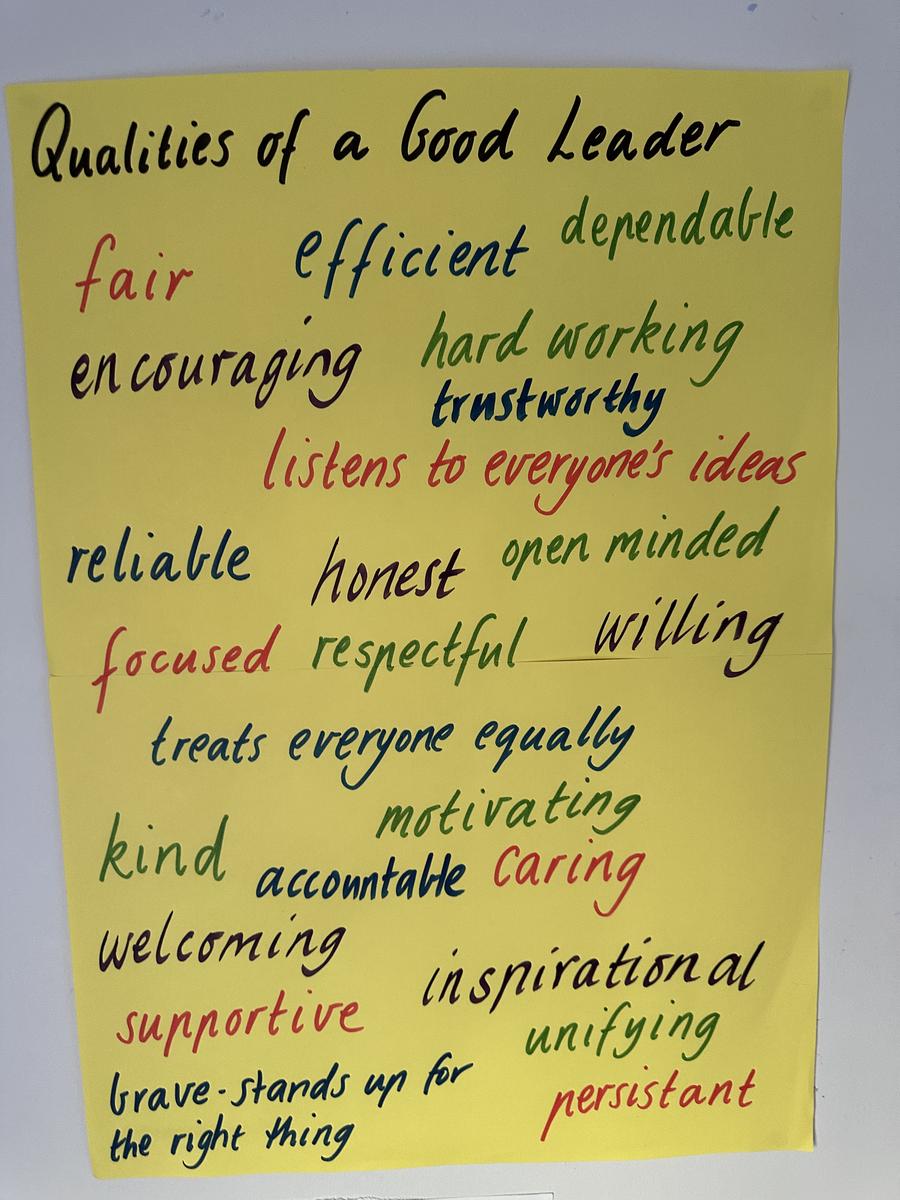 Qualities of a Good Leader
fair efficient dependable
encouraging hard working
trustworthy
listens to everyone's ideas
reliable honest open minded
focused respectful willing
treats everyone equally
motivating
kind accountable caring
welcoming inspirational
supportive unifying
brave-stands up for
the right thing
persistant